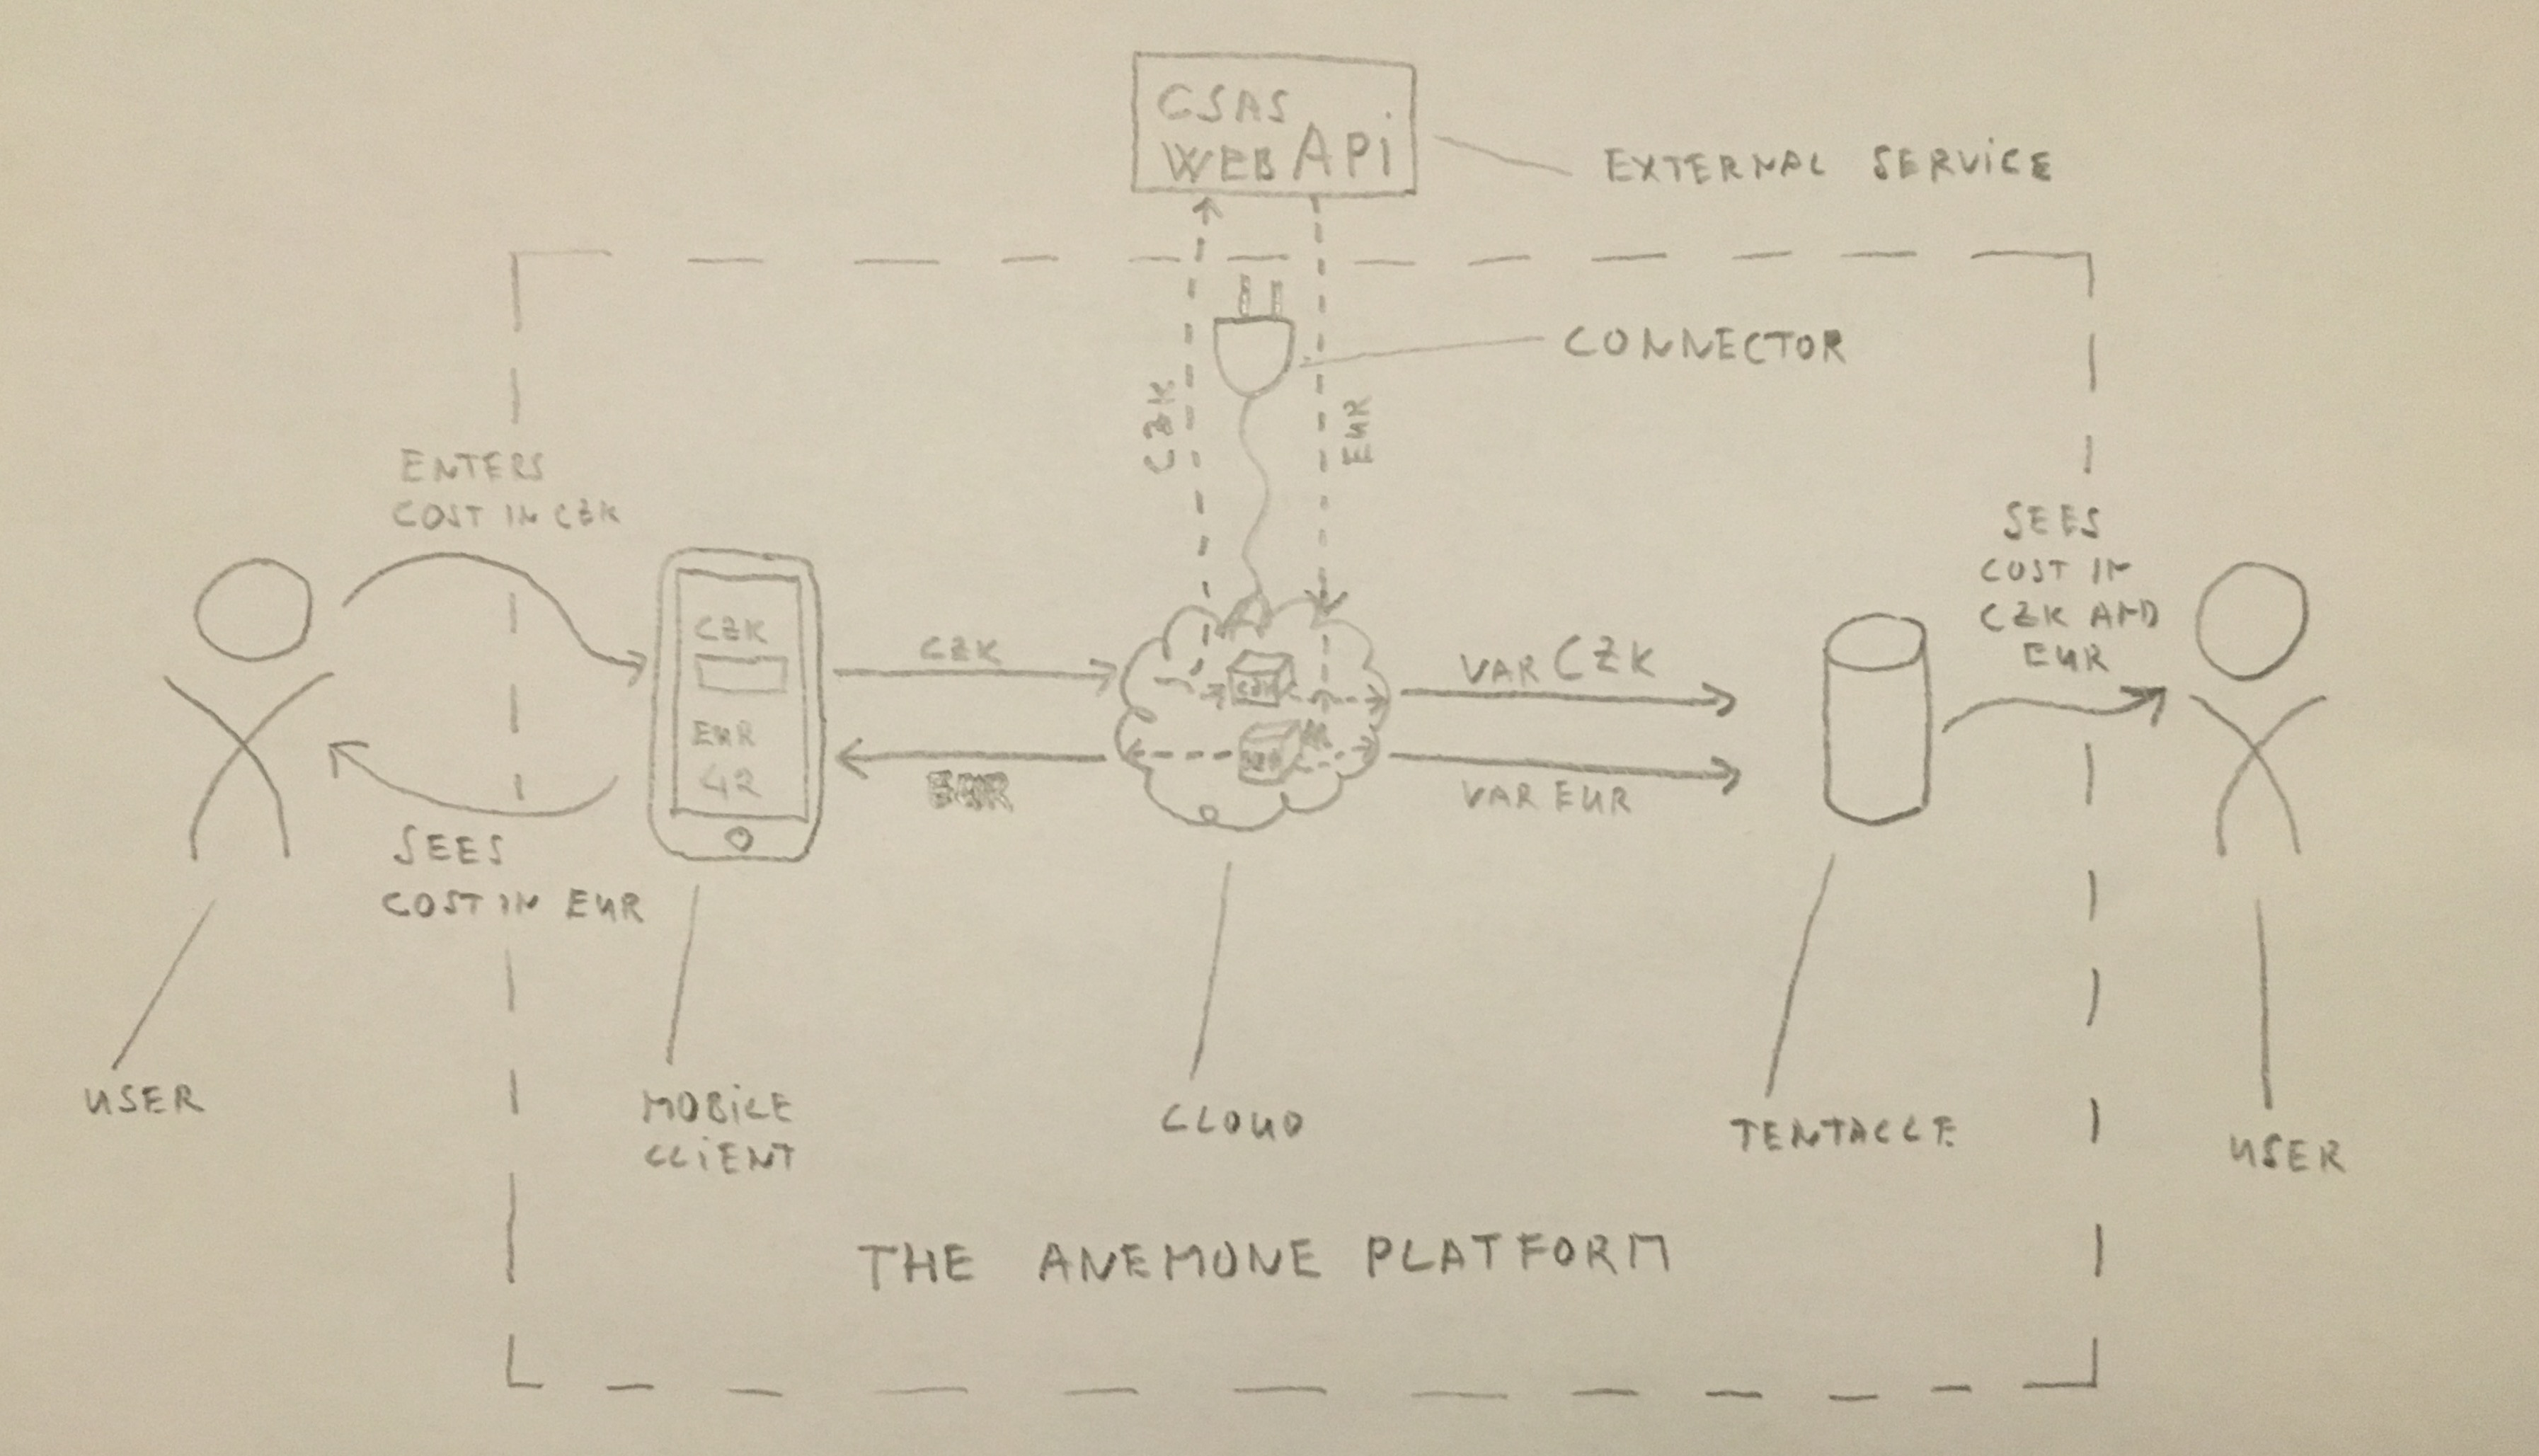 CSAS
WEB APi
EXTERNAL SERViCE
CONNECTOR
CZK
EUR
ENTERS
COST IN CZK
SEES
COST IN
CZK AND
EUR
CZK
EUR
42
CZK
EUR
VAR CZK
VAR EUR
SEES
COST IN EUR
USER
MOBiLE
CLiENT
CLOUD
TENTACLE
USER
THE ANEMONE PLATFORM